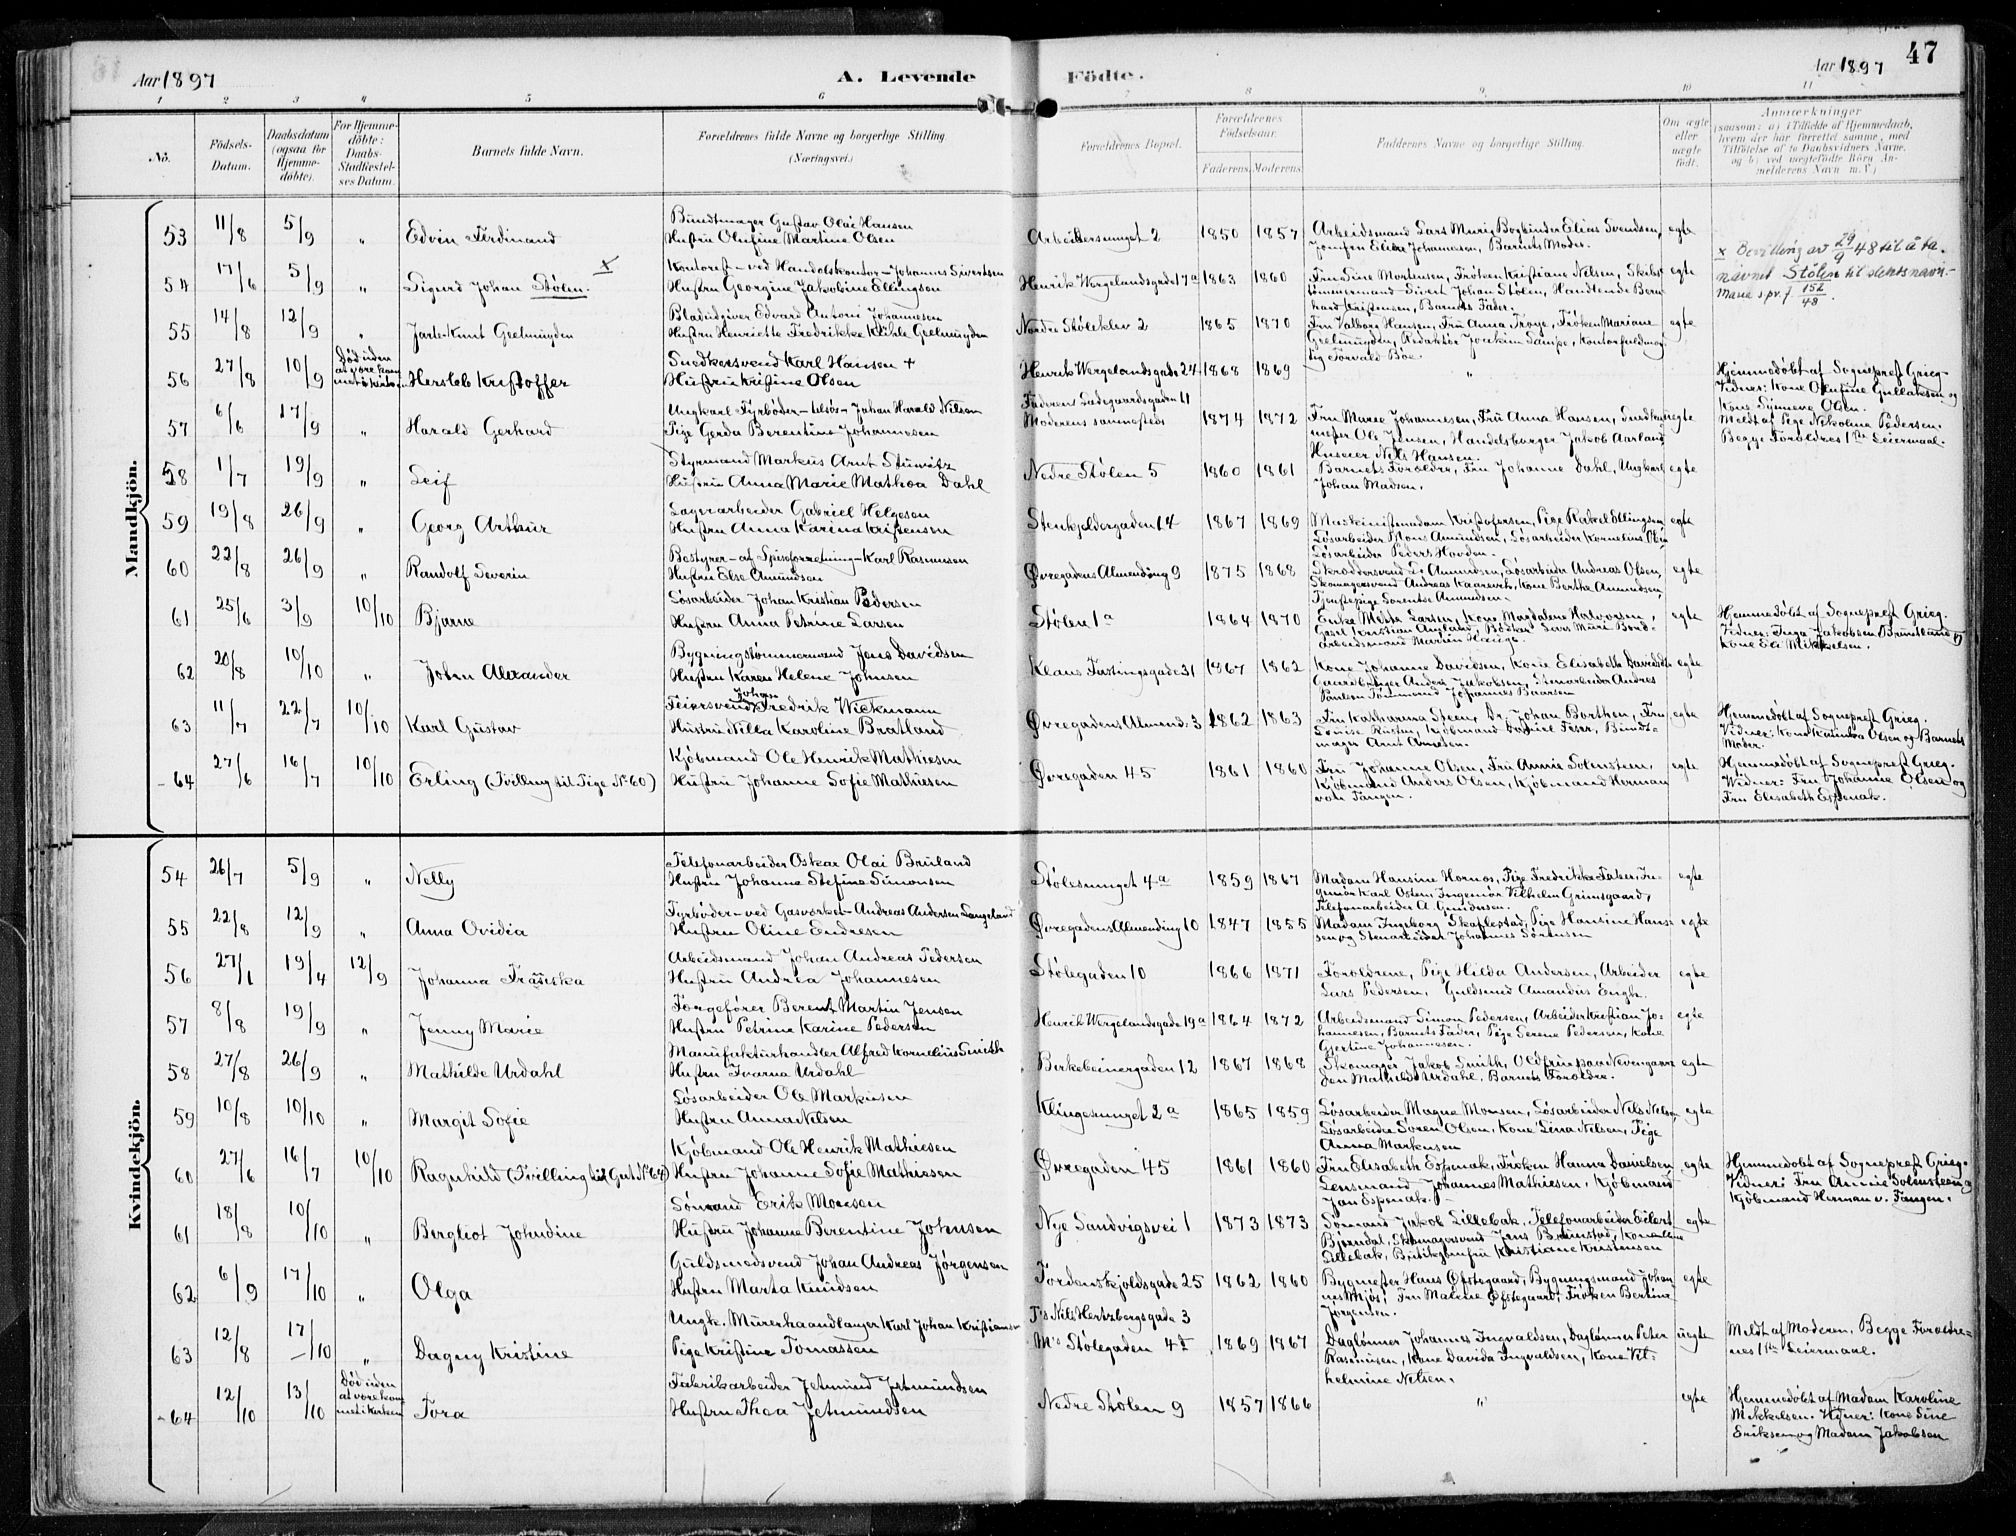 Aar 1897
A. Levende
Födte.
Aar 1897
47
1 2 3 4 5 6 7 8 9 10 11
No.
Födsels-Datum.
Daabsdatum (ogsaa for Hjemme-döbte).
For Hjemme-döbte: Daabs-Stadfæstel-ses Datum.
Barnets fulde Navn.
Forældrenes fulde Navne og borgerlige Stilling. (Næringsvei.)
Forældrenes Bopæl.
Forældrenes Fødselsaar.
Faderens. Moderens.
Faddernes Navne og borgerlige Stilling.
Om ægte eller uægte født.
Anmærkninger
(saasom: a) i Tilfælde af Hjemmedaab, hvem der har forrettet samme, med Tilföielse af to Daabsvidners Navne, og b) ved uægtefödte Börn An-melderens Navn m. V.)
Mandkjön.
53 11/8 5/9 " Edvin Ferdinand
Bundtmager Gustav Olai Hansen
Hustru Olufine Martine Olsen
Arbeidersmuget 2 1850 1857
Arbeidsmand Lars Murig Bogbinder Elias Svendsen,
Barnets Moder. egte
54 17/6 5/9 " Sigurd Johan Stølen. x
Kontorist - ved Handelskontor - Johannes Sivertsen
Hustru Georgine Jakobine Ellingsen
Henrik Wergelandsgade 17a 1863 1860
Fru Sine Mortensen, Frøken Kristiane Nelsen, Skibs-
tømmermand Sivert Johan Stølen, Handlende Bern-
hard Kristensen, Barnets Fader. egte
x Bevilling av 29/9 48 til å ta
navnet Stølen til slektsnavn.
152/48.
55 14/8 12/9 " Jarle Knut Geelmuyden
Bladudgiver Edvard Antoni Johannesen
Hustru Henriette Fredrikke Kihle Geelmuyden
Nedre Støleklev 2 1865 1870
Fru Valborg Hansen, Fru Anna Troye, Frøken Mariane
Geelmuyden, Redaktør Joakim Sampe, Kontorfuldmæg-
tig Torvald Bøe. egte
56 27/8 10/9 Død uden at være kom met i kirken Hersleb Kristoffer
Snedkersvend Karl Hansen +
Hustru Kristine Olsen
Henrik Wergelandsgade 24 1868 1869 "
Hjemmedøbt af Sogneprest Grieg.
Vidner: Kone Olufine Gullaksen og
Kone Synneve Olsen.
57 6/6 17/9 " Harald Gerhard
Ungkarl Fyrbøder - tilsøs - Johan Harald Nilsen
Pige Gerda Berentine Johannesen
Faderens Ladegaardsgaden 11
Moderens sammesteds 1874 1872
Fru Marse Johannesen, Fru Anna Hansen, Snedker-
mester Ole Jensen, Handelsborger Jakob Aarland
Huseier Nils Hansen. uegte
Meldt af Pige Nekoline Pedersen.
Begge Forældres 1ste Leiermaal.
58 1/7 19/9 " Leif
Styrmand Markus Arnt Stuwitz
Hustru Anna Marie Mathea Dahl
Nedre Stølen 5 1860 1861
Barnets Forældre, Fru Johanne Dahl, Ungkarl
Johan Madsen. egte
59 19/8 26/9 " Georg Arthur
Lagerarbeider Gabriel Helgesen
Hustru Anna Karina Kristensen
Stenkjeldergaden 14 1867 1869
Maskinistmadam Kristofersen, Pige Rakel Ellingsen,
Løsarbeider Mons Amundsen, Løsarbeider Kornelius
Løsarbeider Peders Hovden. egte
60 22/8 26/9 " Randolf Severin
Bestyrer - af Spiseforretning - Karl Rasmussen
Hustru Else Amundsen
Øvregadens Almending 9 1875 1868
Skræddersvend L. Amundsen, Løsarbeider Andreas Olsen,
Skomagersvend Andreas Kaarevik, Kone Berthe Amundsen,
Tjenstepige Lorentse Amundsen. egte
61 25/6 3/9 10/10 Bjarne
Løsarbeider Johan Kristian Pedersen
Hustru Anna Petrine Larsen
Stølen 1a 1864 1870
Enke Mette Larsen, Kone Magdalene Halvorsen,
Bødker Lars Muri
Arbeidsmand Martin Hauge. egte
Hjemmedøbt af Sogneprest Grieg.
Vidner: Inga Jakobsen Bruntland og
Kone Eli Mikkelsen.
62 20/8 10/10 " Johan Alexander
Bygningstømmermand Jens Davidsen
Hustru Karen Helene Johnsen
Klaus Fastingsgade 31 1867 1862
Kone Johanne Davidsen, Kone Elisabeth Davidsen
Gaardbruger Anders Jakobsen, Stenarbeider Andres
Paulsen Tømmermand Johannes Baarsen egte
63 11/7 22/7 10/10 Karl Gustav
Feiersvend Johan Fredrik Wickmann
Hustru Nilla Karoline Bratland
Øvregadens Almend. 3 1862 1863
Fru Katharina Steen, Dr. Johan Borthen, Fru
Louise Kjøbmand Gabriel Bundt-
mager Arnt Arnesen. egte
Hjemmedøbt af Sogneprest Grieg.
Vidner: Kone Katinka Olsen og Barnets
Moder.
- 64 27/6 16/7 10/10 Erling (Tvilling til Pige No 60)
Kjøbmand Ole Henrik Mathiesen
Hustru Johanne Sofie Mathiesen
Øvregaden 45 1861 1860
Fru Johanne Olsen, Fru Annie Solensteen,
Kjøbmand Anders Olsen, Kjøbmand Herman
von Tangen. egte
Hjemmedøbt af Sogneprest Grieg.
Vidner: Fru Johanne Olsen og
Fru Elisabeth Espenak.
Kvindekjön.
54 26/7 5/9 " Nelly
Telefonarbeider Oskar Olai Bruland
Hustru Johanne Stefine Simonsen
Stølesmuget 4a 1859 1867
Madam Hansine Hornes, Pige Fredrikke In-
geniør Karl Osten, Ingeniør Vilhelm Grimsgaard,
Telefonarbeider A. Gundersen. egte
55 22/8 12/9 " Anna Ovidia
Fyrbøder - ved Gasverket - Andreas Andersen Langeland
Hustru Oline Endresen
Øvregadens Almending 10 1847 1855
Madam Ingeborg Skaflestad, Pige Hansine Han-
sen og Stenarbeider Johannes Sørensen egte
56 27/1 19/4 12/9 Johanna Fransiska
Arbeidsmand Johan Andreas Pedersen
Hustru Andrea Johannesen
Stølegaden 10 1866 1871
Forældrene, Pige Hilda Andersen, Arbeider
Lars Pedersen, Guldsmed Amandus Engh. egte
57 8/8 19/9 " Jenny Marie
Færgefører Berent Martin Jensen
Hustru Petrine Karine Pedersen
Henrik Wergelandsgade 19a 1864 1872
Arbeidsmand Simon Pedersen, Arbeider Kristian Jo-
hannesen, Barnets Fader, Pige Serene Pedersen, Kone
Gjertine Johannesen. egte
58 27/8 26/9 " Mathilde Urdahl
Manufakturhandler Alfred Kornelius Smith
Hustru Ivarna Urdahl
Birkebeinergaden 12 1867 1868
Skomager Jakob Smith,
Mathilde Urdahl, Barnets Forældre. egte
59 10/8 10/10 " Margit Sofie
Løsarbeider Ole Markusen
Hustru Anna Nelsen
Klingesmuget 2a 1865 1859
Løsarbeider Magne Monsen, Løsarbeider Nils Nelsen,
Løsarbeider Søren Olsen, Kone Lina Nelsen, Pige
Anna Markusen egte
60 27/6 16/7 10/10 Ragnhild (Tvilling til Gut No 64)
Kjøbmand Ole Henrik Mathiesen
Hustru Johanne Sofie Mathiesen
Øvregaden 45 1861 1860
Fru Elisabeth Espenak, Frøken Hanna Danielsen,
Lensmand Johannes Mathiesen, Kjøbmand
Jan Espenak. egte
Hjemmedøbt af Sogneprest Grieg.
Vidner: Fru Annie Solensteen og
Kjøbmand Herman v. Tangen.
61 18/8 10/10 " Bergliot Johndine
Sømand Erik Monsen
Hustru Johanne Berentine Johnsen
Nye Sandvigsvei 1 1873 1873
Sømand Jakob Lillebak, Telefonarbeider Eilert
Bjørndal, Skomagersvend Jens Brimstad, Kone
Lillebak, Butikjomfru Kristiane Kristensen egte
62 6/9 17/10 " Olga
Guldsmedsvend Johan Andreas Jørgensen
Hustru Marta Knudsen
Tordenskjoldsgade 25 1862 1860
Bygmester Hans Øfstegaard, Bygningsmand Johan-
nes Mjøs, Fru Malene Øfstegaard, Frøken Bertine
Jørgensen. egte
63 12/8 17/10 " Dagny Kristine
Ungk. Murerhaandlanger Karl Johan Kristiansen
Pige Kristine Tomassen
Fs Nils Hertzbergsgade 3
Ms Stølegaden 4 1869 1867
Daglønner Johannes Ingvaldsen, Daglønner Peter
Rasmusen, Kone Davida Ingvaldsen, Kone Vil-
helmine Nelsen. uegte
Meldt af Moderen. Begge Forældre-
nes 1ste Leiermaal.
- 64 12/10 13/10 Død uden at være kom met i kirken Tora
Fabrikarbeider Jetmund Jetmundsen
Hustru Thea Jetmundsen
Nedre Stølen 9 1857 1866 " egte
Hjemmedøbt af Madam Karoline
Mikkelsen. Vidner: Kone Sine
Eriksen og Madam Jakobsen